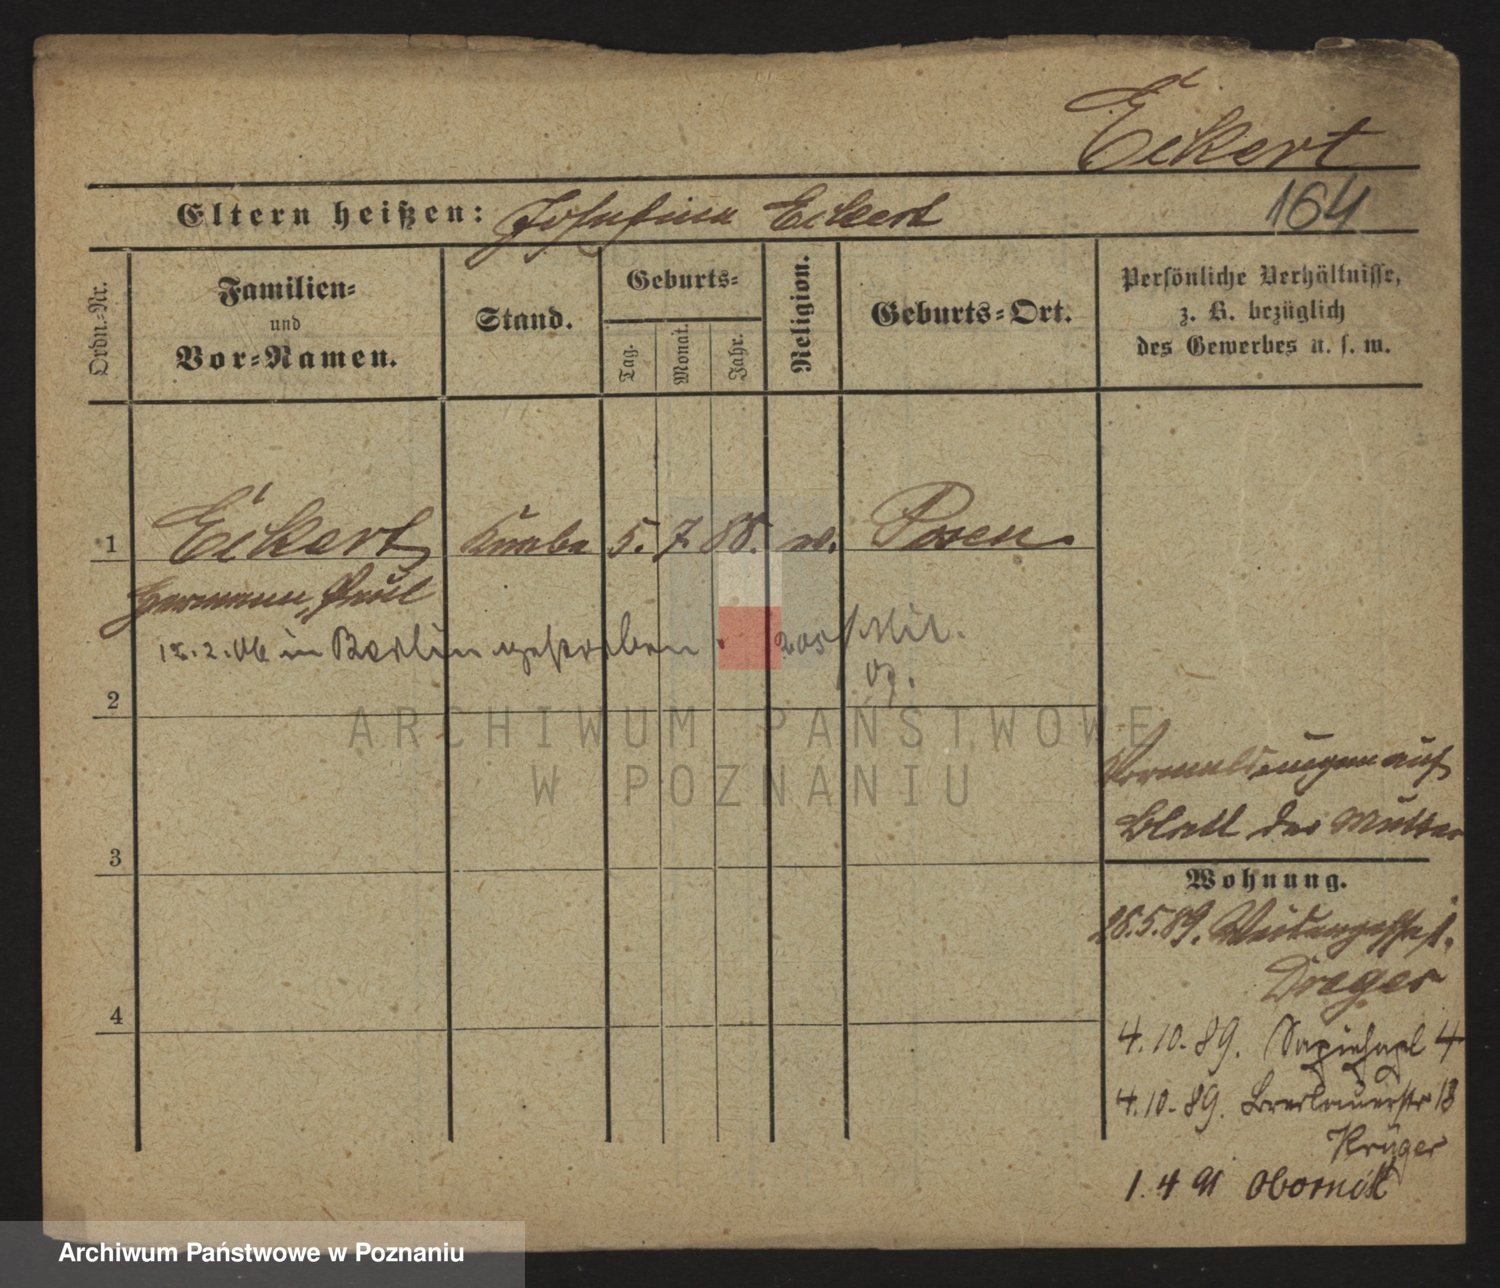 Eckert
164
Eltern heißen: Josefina Eckert
Ordn.-Nr.
Familien-
und
Vor-Namen.
Stand.
Geburts-
Tag.
Monat.
Jahr.
Religion.
Geburts-Ort.
Persönliche Verhältnisse,
z. B. bezüglich
des Gewerbes u. s. w.
1 Eckert Knabe 5. 7. 88. Posen.
Hermann, Paul
2.06 in Berlin gestorben.
2
ARCHIWUM PAŃSTWOWE
W POZNANIU
auf
Blatt der Mutter
3
Wohnung.
28.5.89.
Dreger
4
4.10.89. Sapiehapl 4
4.10.89. Breslauerstr 18
Krüger
1.4 91 Obornik
Archiwum Państwowe w Poznaniu